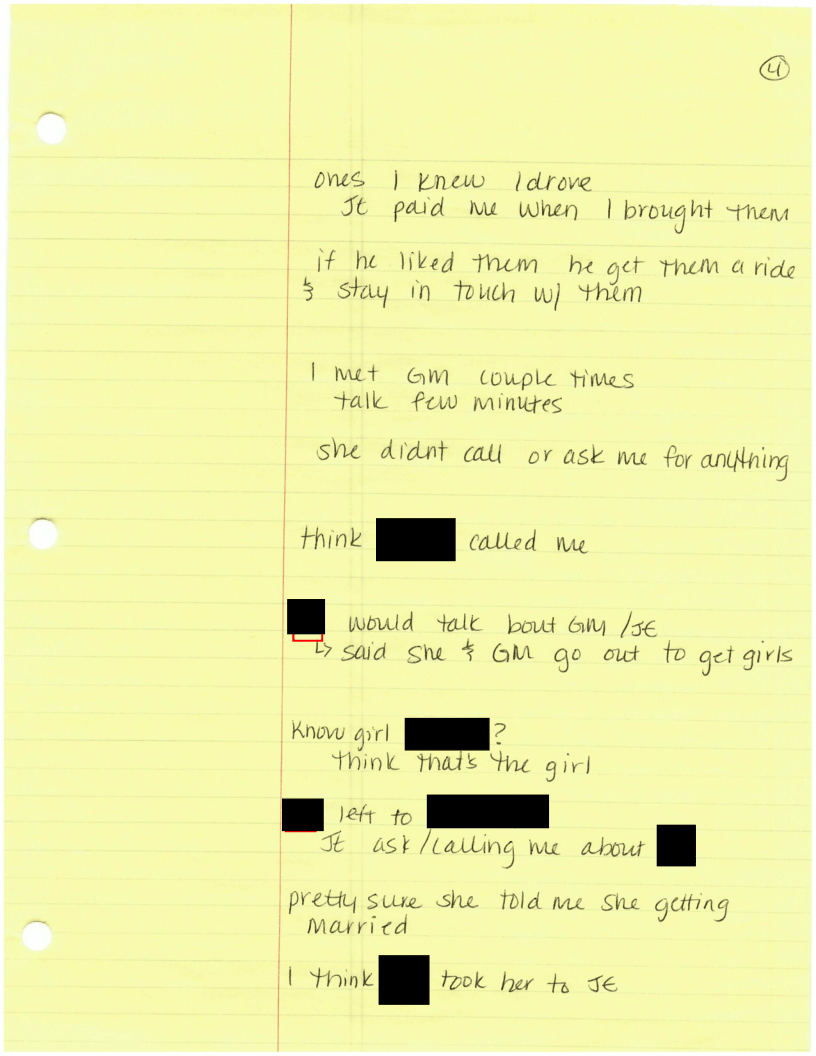 4
ones I knew I drove
JE paid me when I brought them
if he liked them he get them a ride
& stay in touch w/ them
I met GM couple times
talk few minutes
she didnt call or ask me for anything
think called me
would talk bout GM / JE
↳ said she & GM go out to get girls
Know girl ?
think that's the girl
left to
JE ask/calling me about
pretty sure she told me she getting
married
I think took her to JE